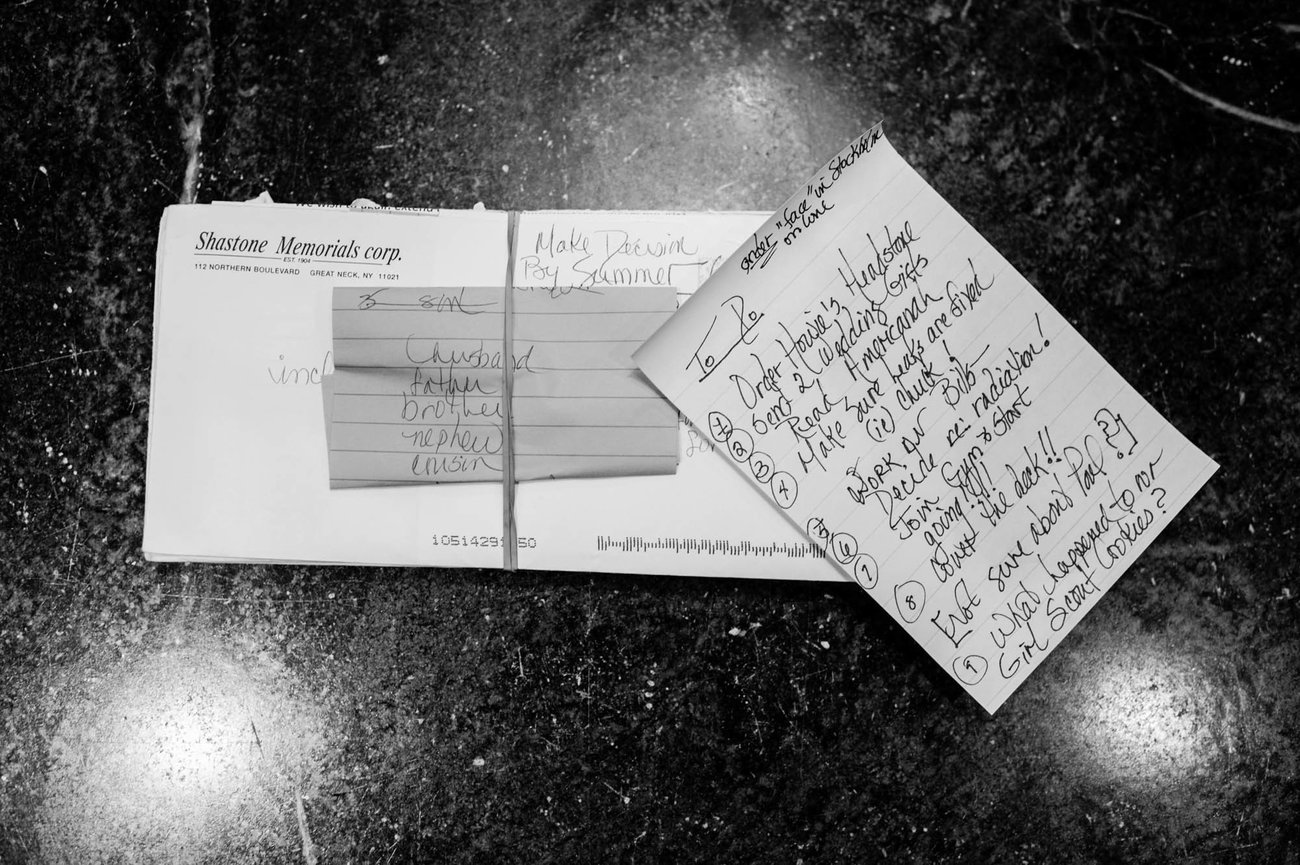 Shastone Memorials corp.
EST. 1904
112 NORTHERN BOULEVARD GREAT NECK, NY 11021
Make Decision
By Summer
husband
father
brother
nephew
cousin
1051429 50
order "face" in Stockholm
on line
To Do
① Order Howie's Headstone
② Send 2 Wedding Gifts
③ Read Americanah
④ Make sure leaks are fixed
(ie) chuck!
⑤ Work on Bills
⑥ Decide re: radiation!
⑦ Join Gym & Start
going!!!
⑧ Cover the deck!!
[Not sure about Pool?]
⑨ What happened to our
Girl Scout Cookies?